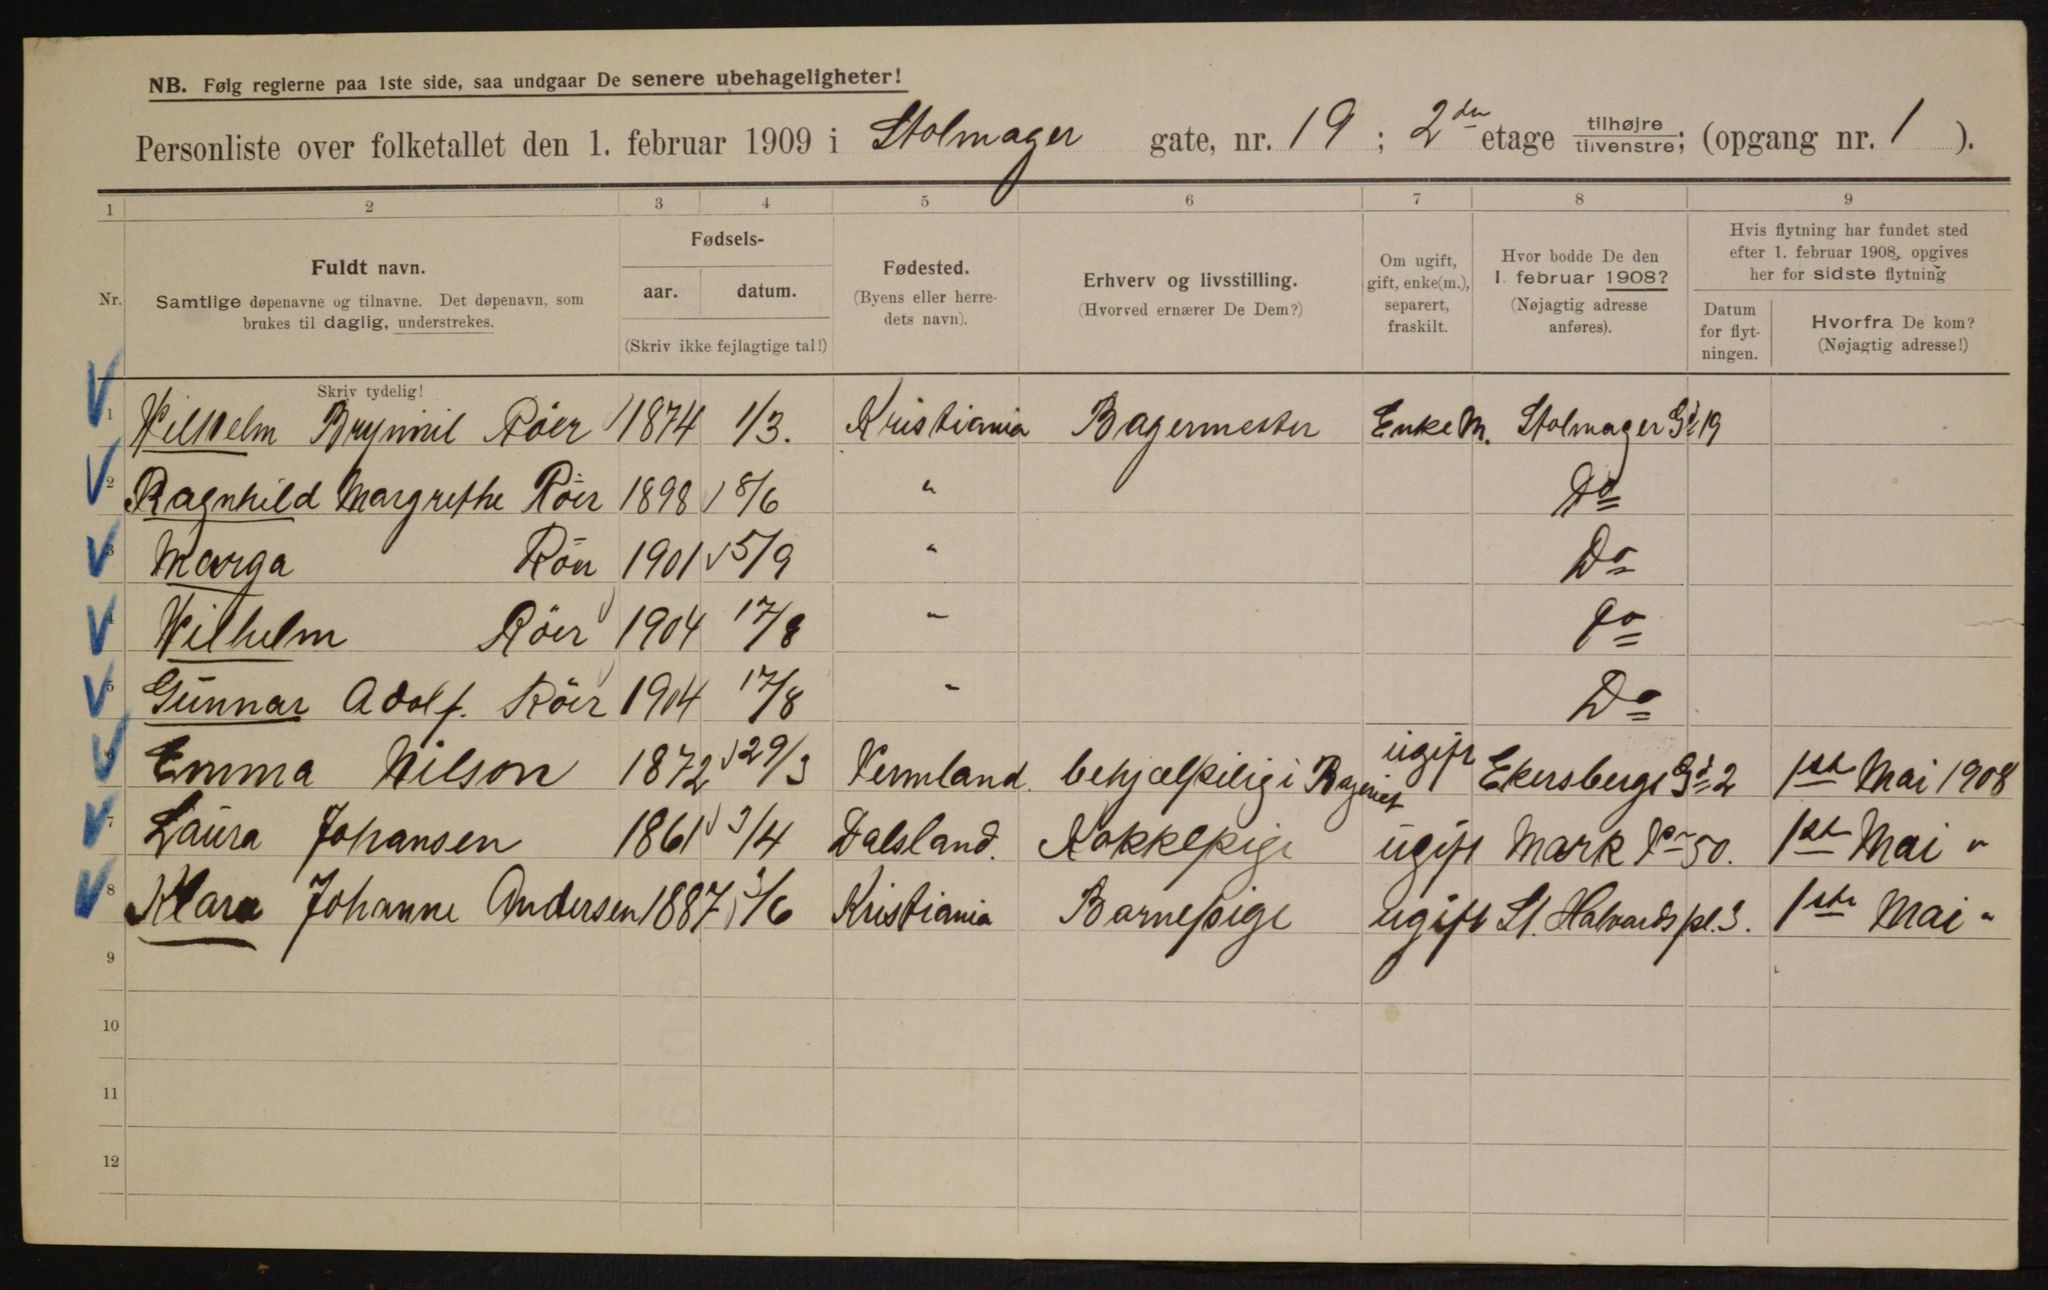 NB. Følg reglerne paa 1ste side, saa undgaar De senere ubehageligheter!
Personliste over folketallet den 1. februar 1909 i Stolmager gate, nr. 19 ; 2den etage tilhøjre tilvenstre; (opgang nr. 1 ).
1 2 3 4 5 6 7 8 9
Nr. Fuldt navn. Samtlige døpenavne og tilnavne. Det døpenavn, som brukes til daglig, understrekes. Fødsels- aar. datum. (Skriv ikke fejlagtige tal!) Fødested. (Byens eller herredets navn). Erhverv og livsstilling. (Hvorved ernærer De Dem?) Om ugift, gift, enke(m.), separert, fraskilt. Hvor bodde De den 1. februar 1908? (Nøjagtig adresse anføres). Hvis flytning har fundet sted efter 1. februar 1908, opgives her for sidste flytning Datum for flytningen. Hvorfra De kom? (Nøjagtig adresse!)
Skriv tydelig!
1 Wilhelm Röer 1874 1/3. Kristiania Bagermester Enke M. Stolmager Gd 19
2 Ragnhild Margrethe Röer 1898 8/6 " Do
3 Marga Röer 1901 5/9 " Do
4 Wilhelm Röer 1904 17/8 " Do
5 Gunnar Adolf. Röer 1904 17/8 " Do
6 Emma Nilson 1872 29/3 Vermland. behjælpelig i Bageriet ugift Ekersbergs Gd 2 1ste Mai 1908
7 Laura Johansen 1861 3/4 Dalsland. Kokkepige ugift Mark 50. 1ste Mai "
8 Klara Johanne Andersen 1887 /6 Kristiania Barnepige ugift St. Halvards pl. 3. 1ste Mai "
9
10
11
12